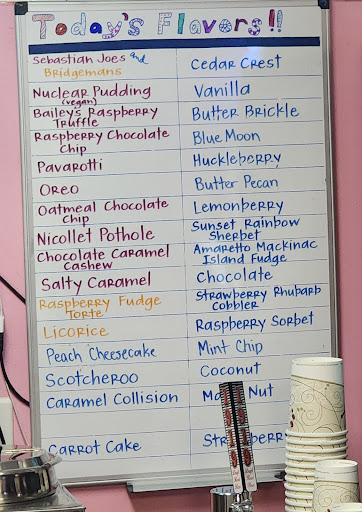 Today's Flavors!!
Sebastian Joes and
Bridgemans
Nuclear Pudding
(vegan)
Bailey's Raspberry
Truffle
Raspberry Chocolate
Chip
Pavarotti
Oreo
Oatmeal Chocolate
Chip
Nicollet Pothole
Chocolate Caramel
Cashew
Salty Caramel
Raspberry Fudge
Torte
Licorice
Peach Cheesecake
Scotcheroo
Caramel Collision
Carrot Cake
Cedar Crest
Vanilla
Butter Brickle
Blue Moon
Huckleberry
Butter Pecan
Lemonberry
Sunset Rainbow
Sherbet
Amaretto Mackinac
Island Fudge
Chocolate
Strawberry Rhubarb
Cobbler
Raspberry Sorbet
Mint Chip
Coconut
Nut